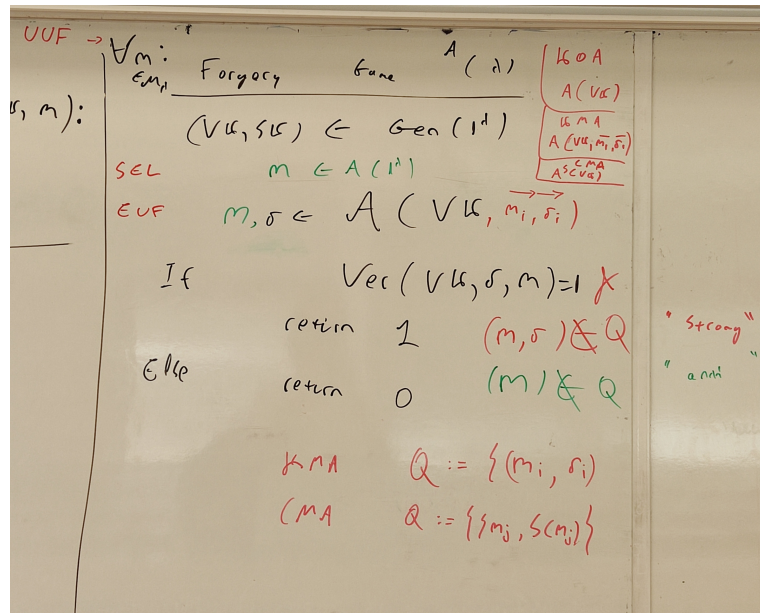 UUF → ∀m:
∈Mλ
Forgery Game A(λ)
KOA
A(VK)
KMA
A(VK, mi, σi)
CMA
A^S(VK)
, m):
(VK, SK) ← Gen(1^λ)
SEL m ← A(1^λ)
EUF m, σ ← A(VK, mi, σi)
If Ver(VK, σ, m)=1 ∧
return 1 (m, σ) ∉ Q "Strong"
Else return 0 (m) ∉ Q
KMA Q := {(mi, σi)
CMA Q := {{mj, S(mj)}